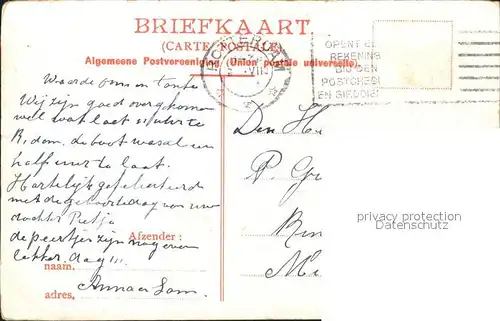 BRIEFKAART
(CARTE POSTALE)
Algemeene Postvereeniging (Union postale universelle)
ROTTERDAM
VIII
OPENT
REKENING
BIJ DEN
POSTCHEQ
EN GIRODIE
Waarde oom en tante
Wij zijn goed overgekomen
wel wat laat
R.dam. de boot was al een
half uur te laat.
Hartelijk gefeliciteerd
met de geboortedag van uw
dochter Pietje
de peertjes zijn nog even
lekker. dag!!!
Anna en
Den H
P. G
M
Afzender:
naam,
adres,
privacy protection
Datenschutz